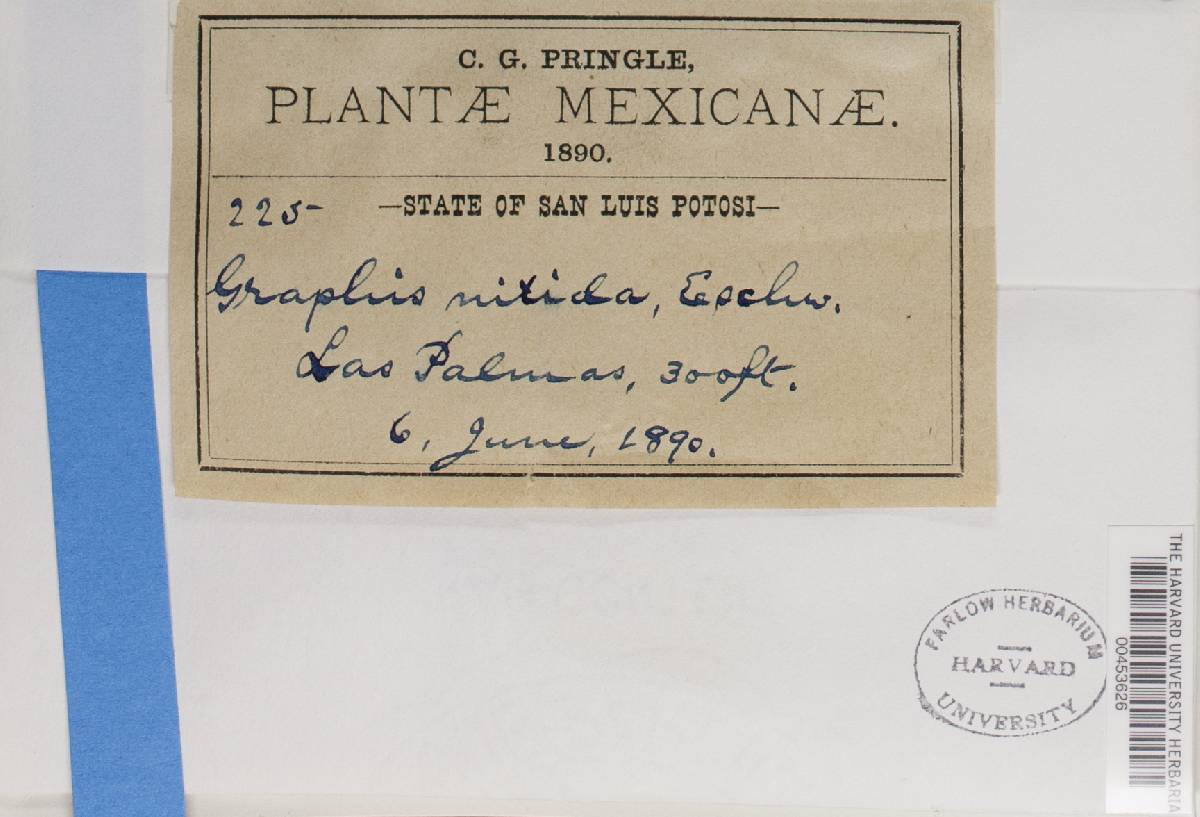 C. G. PRINGLE,
PLANTÆ MEXICANÆ.
1890.
225-
—STATE OF SAN LUIS POTOSI—
Graphis nitida, Eschw.
Las Palmas, 300ft.
6, June, 1890.
FARLOW HERBARIUM
HARVARD
UNIVERSITY
THE HARVARD UNIVERSITY HERBARIA
00453626